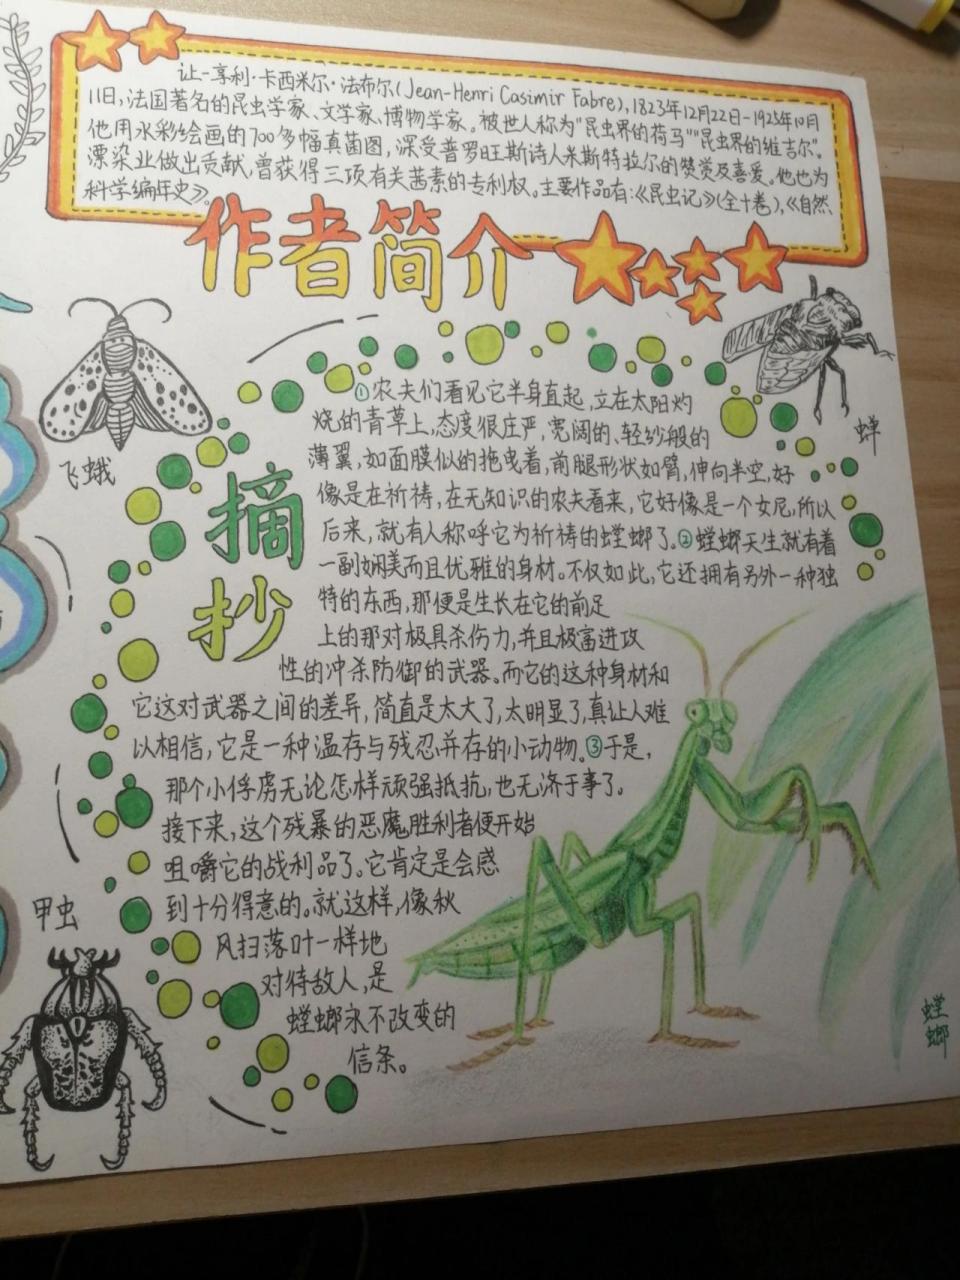 让-亨利·卡西米尔·法布尔(Jean-Henri Casimir Fabre),1823年12月22日-1925年10月
11日,法国著名的昆虫学家、文学家、博物学家。被世人称为"昆虫界的荷马""昆虫界的维吉尔".
他用水彩绘画的700多幅真菌图,深受普罗旺斯诗人米斯特拉尔的赞赏及喜爱。他也为
漂染业做出贡献,曾获得三项有关茜素的专利权。主要作品有:《昆虫记》(全十卷),《自然
科学编年史》。
作者简介
①农夫们看见它半身直起,立在太阳灼
烧的青草上,态度很庄严,宽阔的、轻纱般的
薄翼,如面膜似的拖曳着,前腿形状如臂,伸向半空,好
像是在祈祷,在无知识的农夫看来,它好像是一个女尼,所以
后来,就有人称呼它为祈祷的螳螂了。②螳螂天生就有着
一副娴美而且优雅的身材。不仅如此,它还拥有另外一种独
特的东西,那便是生长在它的前足
上的那对极具杀伤力,并且极富进攻
性的冲杀防御的武器。而它的这种身材和
它这对武器之间的差异,简直是太大了,太明显了,真让人难
以相信,它是一种温存与残忍并存的小动物。③于是,
那个小俘虏无论怎样顽强抵抗,也无济于事了。
接下来,这个残暴的恶魔胜利者便开始
咀嚼它的战利品了。它肯定是会感
到十分得意的。就这样,像秋
风扫落叶一样地
对待敌人,是
螳螂永不改变的
信条。
摘
抄
飞蛾
蝉
甲虫
螳
螂